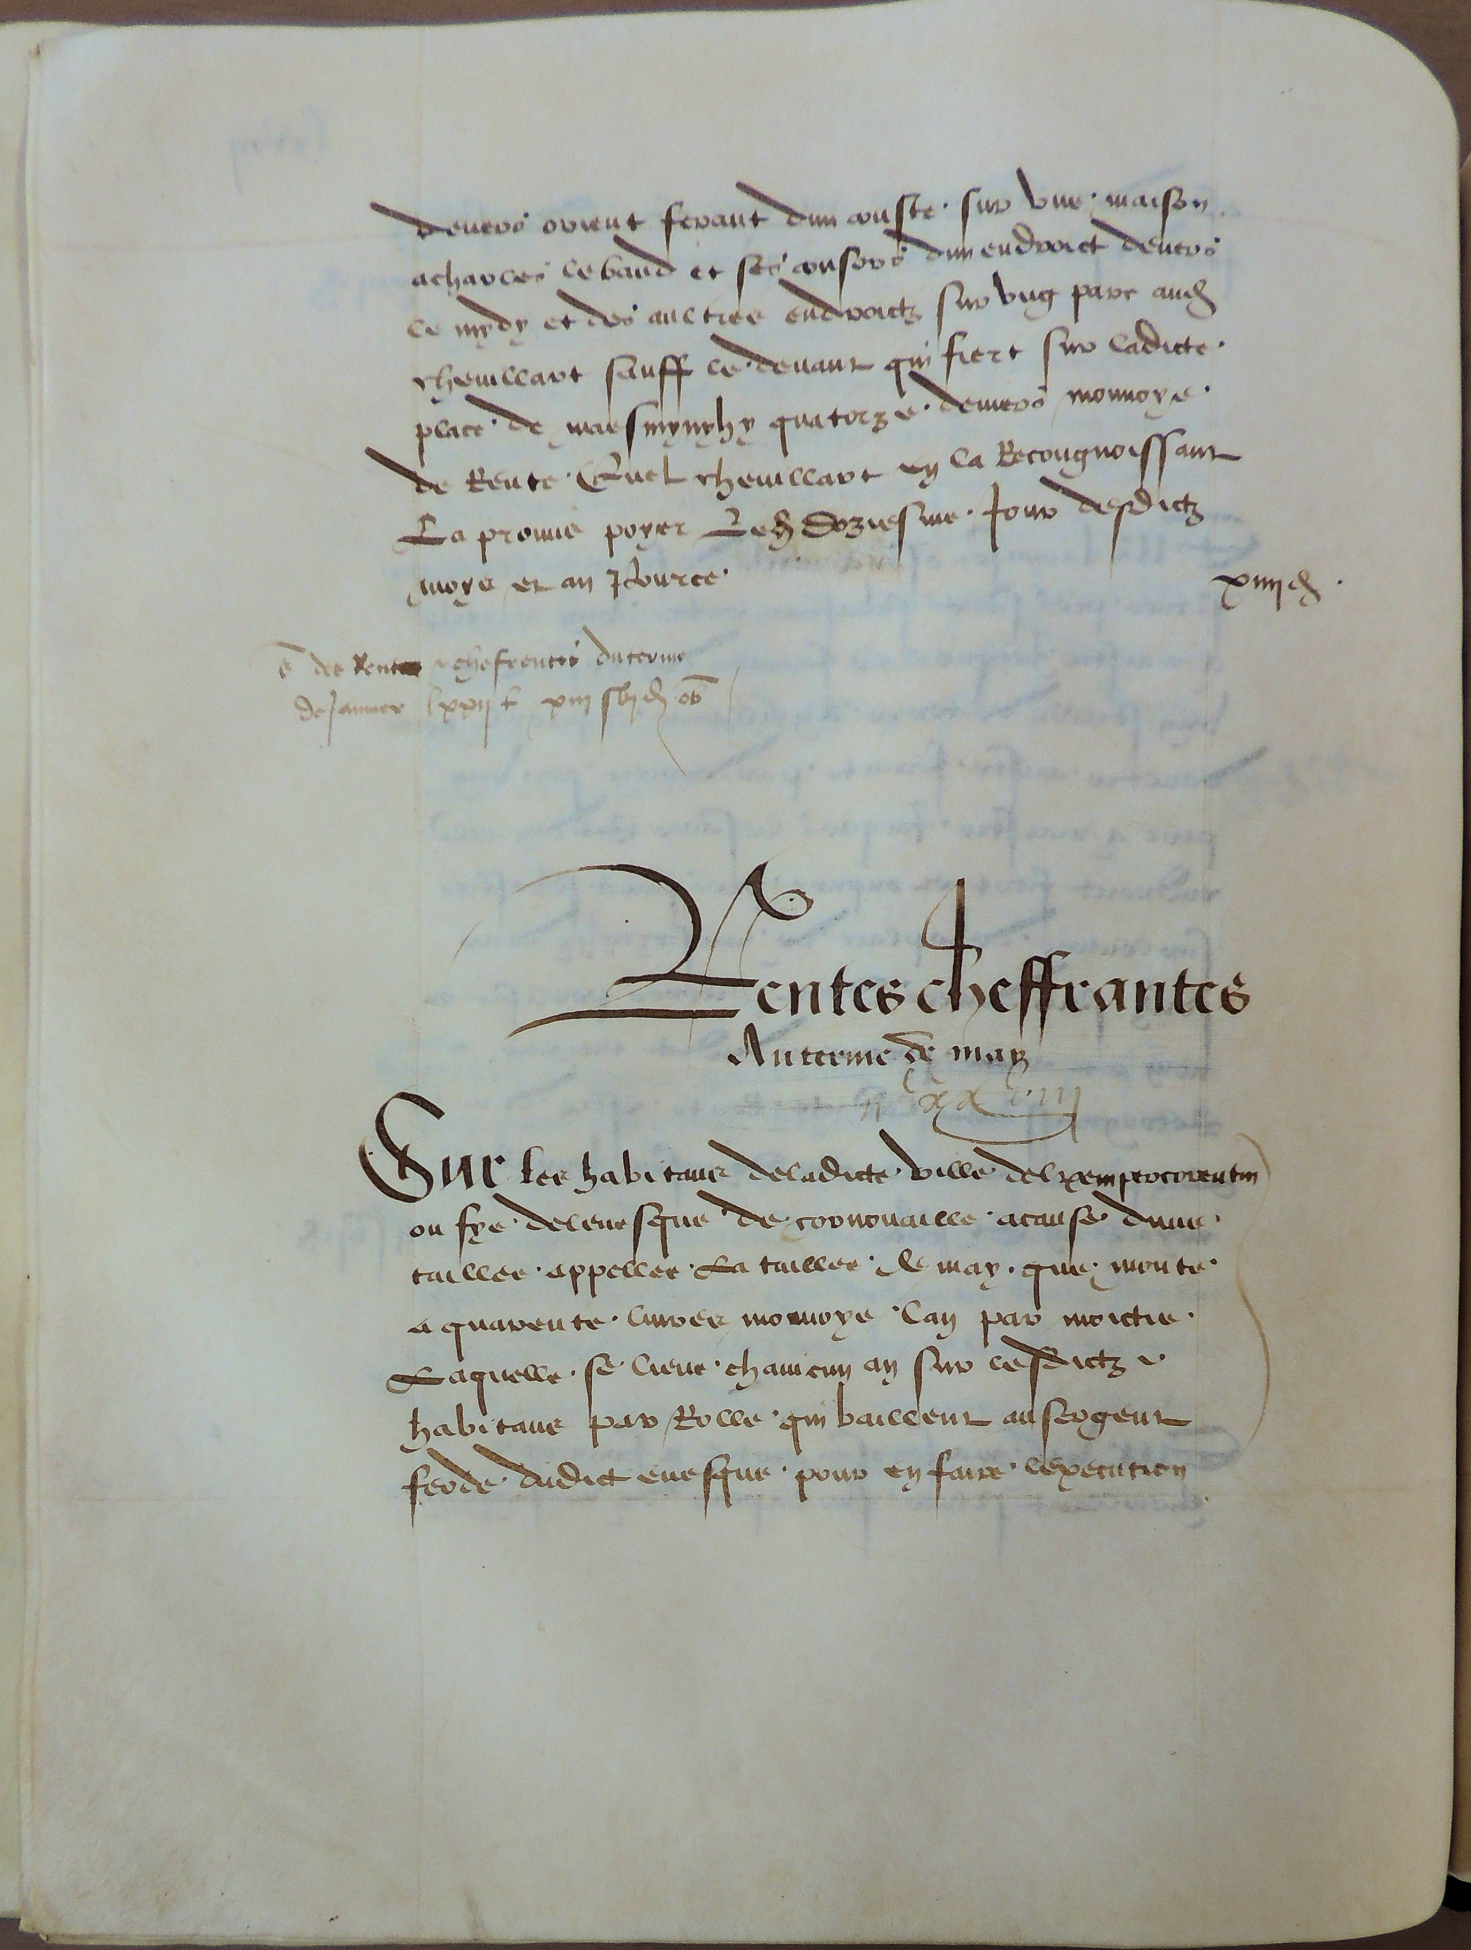 devers orient ferant dun couste sur une maison
a charles le baud et ses consors dun endroict devers
le mydy et des aultres endroictz sur ung parc aud
cheuillart sauff le devant qui fiert sur ladicte
place de maesmynyhy quatorze deniers monnoye
de Rente Quel cheuillart en la Recougnoissant
La promis poyer Led doziesme Jour desdictz
moys et an
xiiii d
des Rentes cheffrentes du terme
de Janvier lxxii l xiii s
Rentes cheffrantes
Au terme de may
Sur les habitans de ladicte ville de
ou fye de levesque de cornouaille a cause dune
taillee appellee La taillee de may que monte
a quarente livres monnoye lan par moictie
Laquelle se lieve chaincun an sur lesdictz
habitans par Rolle qui baillent au sergent
feode dudict evesque pour en faire lexecution